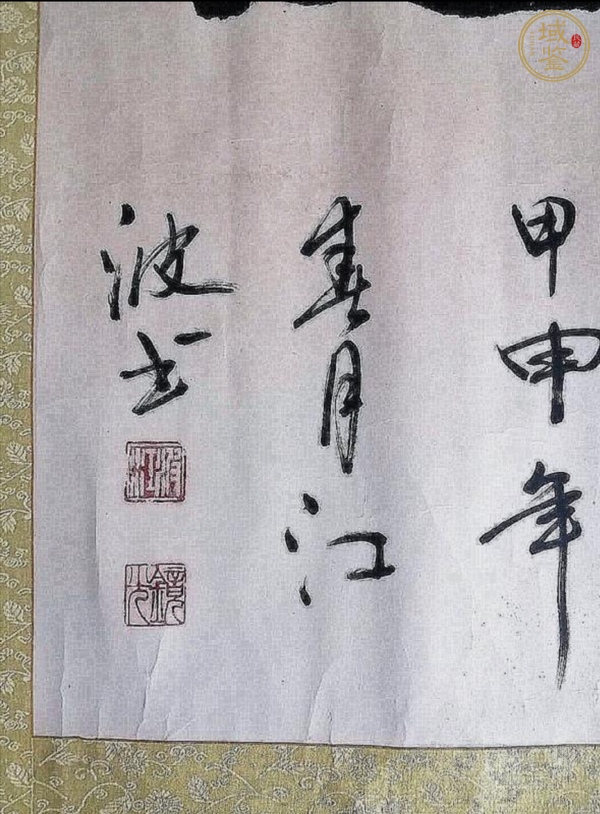 甲申年
春月江
波书
江波
域鉴